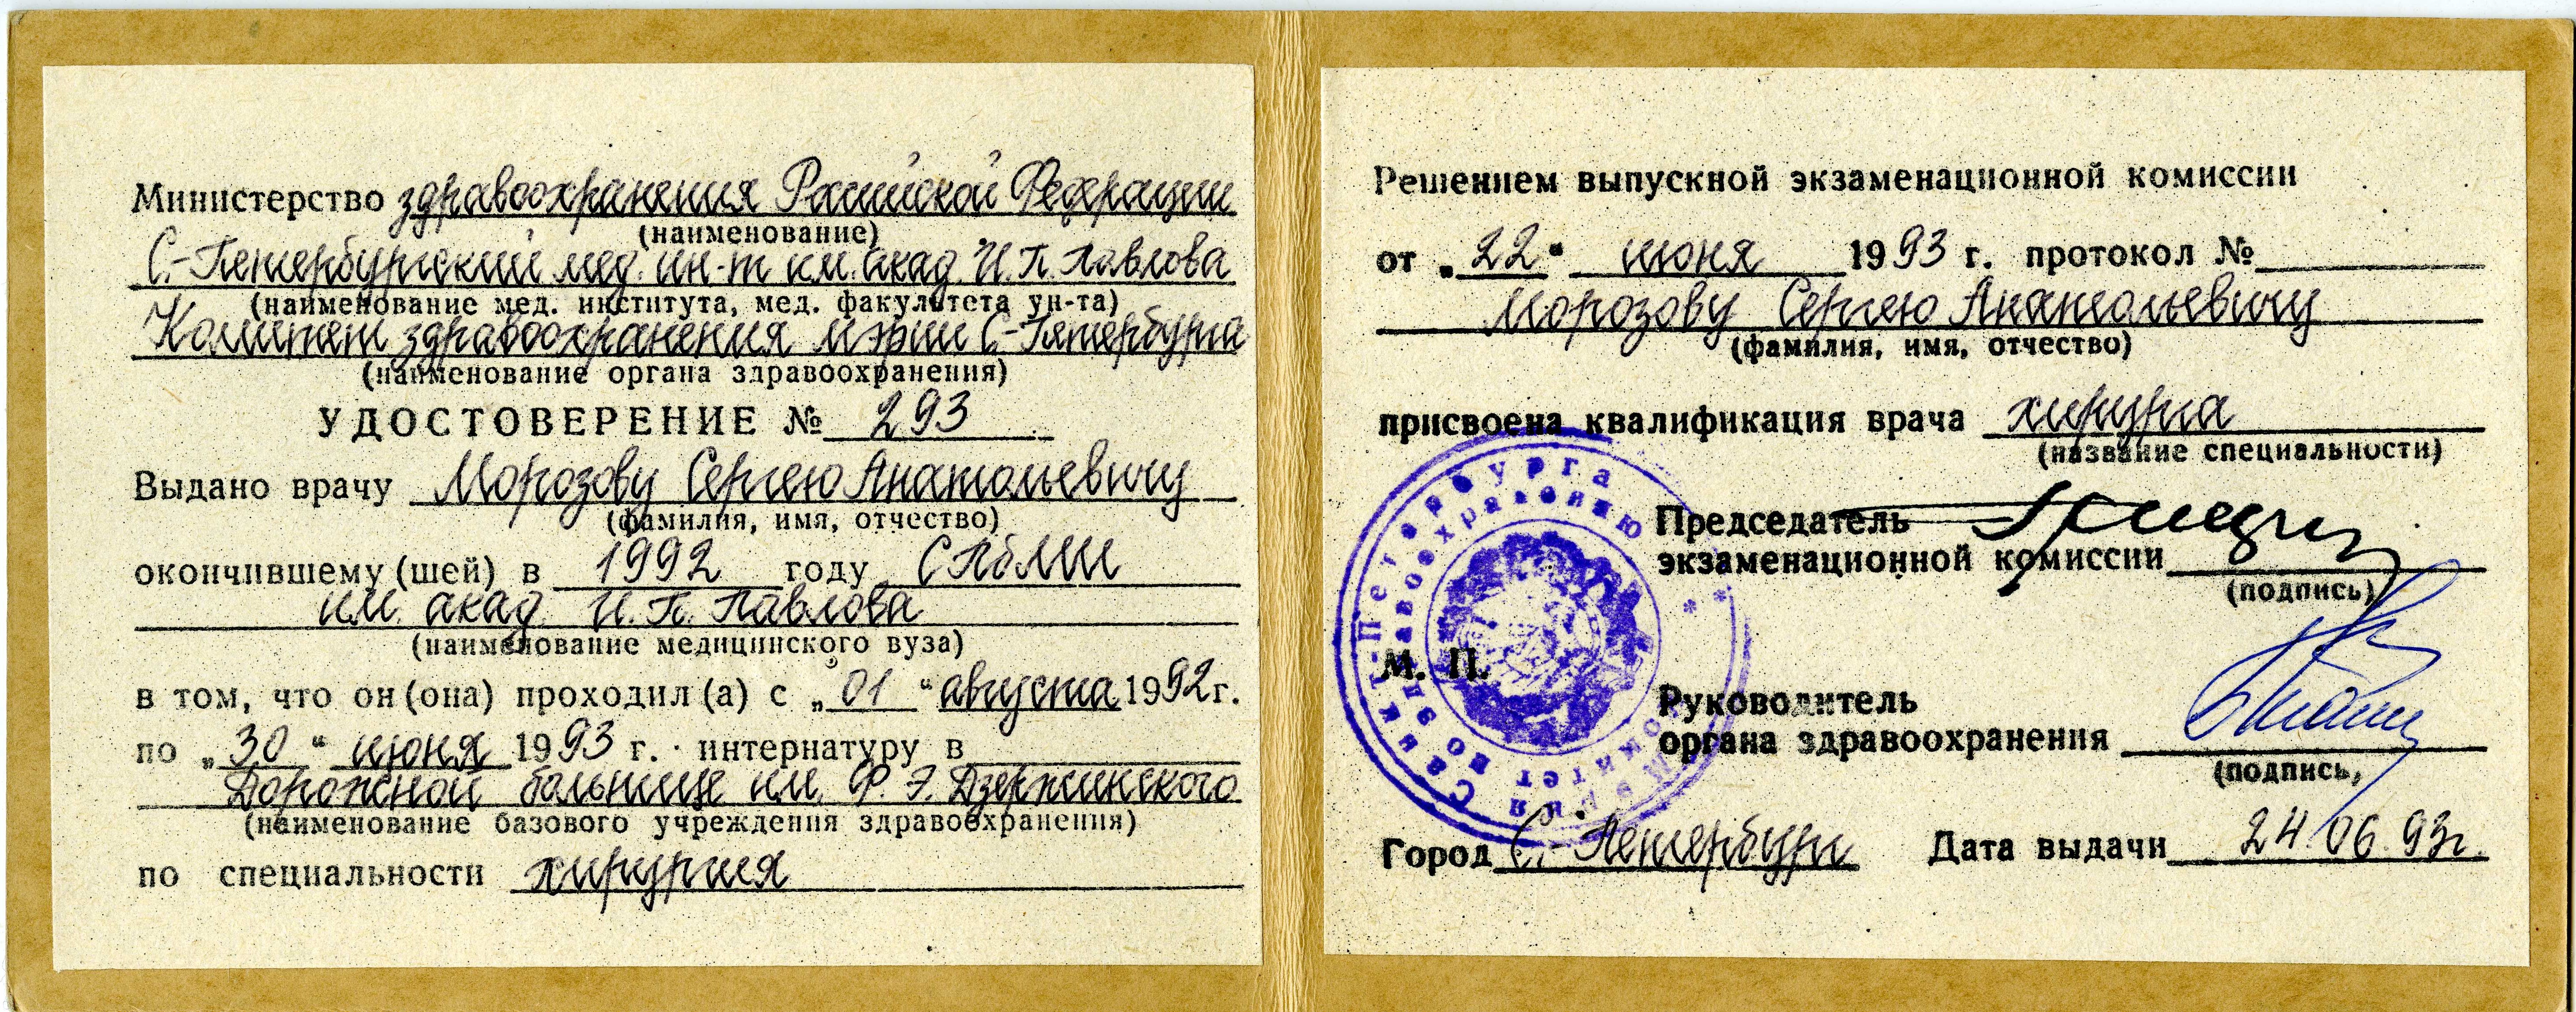 Министерство здравоохранения Российской Федерации
(наименование)
С.-Петербургский мед. ин-т им. акад. И. П. Павлова
(наименование мед. института, мед. факультета ун-та)
Комитет здравоохранения мэрии С-Петербурга
(наименование органа здравоохранения)
УДОСТОВЕРЕНИЕ № 293
Выдано врачу Морозову Сергею Анатольевичу
(фамилия, имя, отчество)
окончившему (шей) в 1992 году СПбМИ
им. акад. И. П. Павлова
(наименование медицинского вуза)
в том, что он (она) проходил (а) с „01“ августа 1992 г.
по „30“ июня 1993 г. интернатуру в
Дорожной больнице им. Ф. Э. Дзержинского
(наименование базового учреждения здравоохранения)
по специальности хирургия
Решением выпускной экзаменационной комиссии
от „22“ июня 1993 г. протокол №
Морозову Сергею Анатольевичу
(фамилия, имя, отчество)
присвоена квалификация врача хирурга
(название специальности)
Председатель
экзаменационной комиссии
(подпись)
М. П.
Санкт-Петербурга
Комитет по здравоохранению
Руководитель
органа здравоохранения
(подпись,
Город С.-Петербург Дата выдачи 24.06.93г.